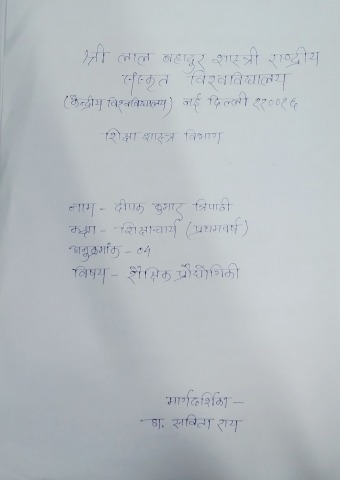 श्री लाल बहादुर शास्त्री राष्ट्रीय
संस्कृत विश्वविद्यालय
(केन्द्रीय विश्वविद्यालय) नई दिल्ली ११००१६
शिक्षा शास्त्र विभाग
नाम - दीपक कुमार त्रिपाठी
कक्षा - शिक्षाचार्य (प्रथमवर्ष)
अनुक्रमांक - ०५
विषय - शैक्षिक प्रौद्योगिकी
मार्गदर्शिका -
डा. सविता राय